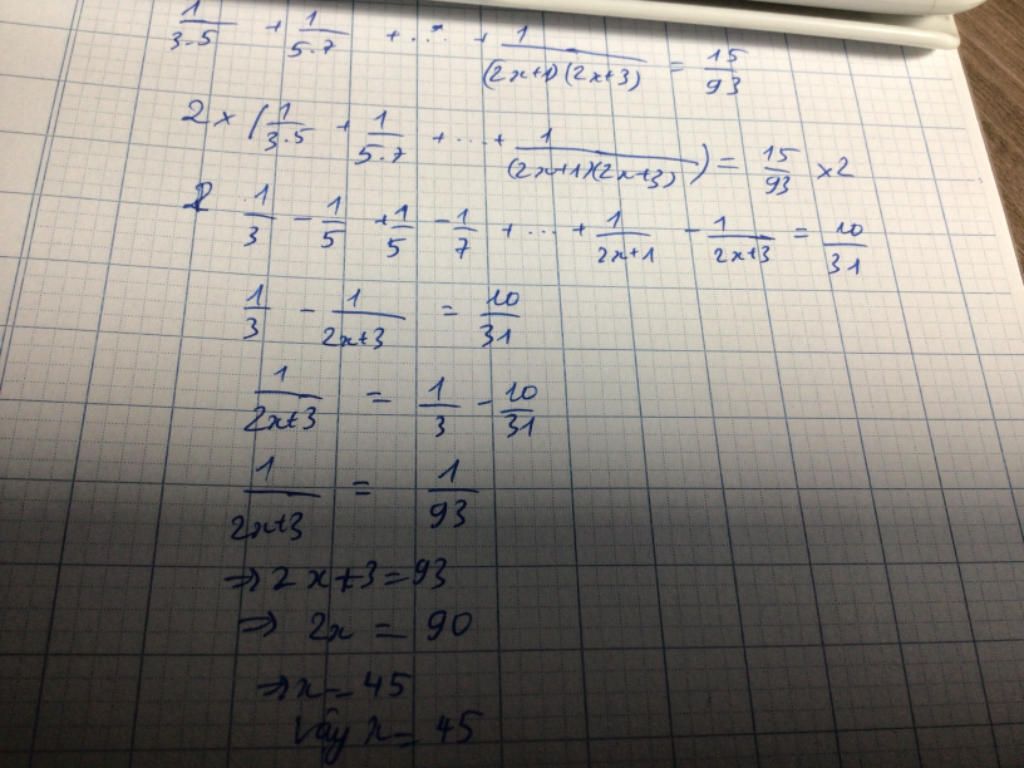 1/3.5 + 1/5.7 + ... + 1/(2x+1)(2x+3) = 15/93
2 x (1/3.5 + 1/5.7 + ... + 1/(2x+1)(2x+3)) = 15/93 x 2
1/3 - 1/5 + 1/5 - 1/7 + ... + 1/2x+1 - 1/2x+3 = 10/31
1/3 - 1/2x+3 = 10/31
1/2x+3 = 1/3 - 10/31
1/2x+3 = 1/93
=> 2x+3 = 93
=> 2x = 90
=> x = 45
Vậy x = 45